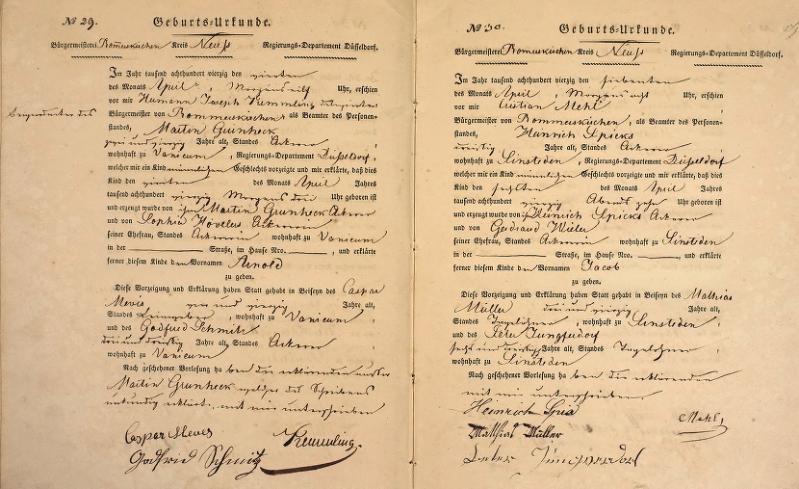 No 29.
Geburts-Urkunde.
Bürgermeisterei Rommerskirchen Kreis Neuss Regierungs-Departement Düsseldorf.
Im Jahr tausend achthundert vierzig den vierten
des Monats April, Morgens elf Uhr, erschien
vor mir Hermann Joseph Kemmling
Bürgermeister von Rommerskirchen, als Beamter des Personen-
standes, Martin Grünheck
zwei und vierzig Jahre alt, Standes Ackerer
wohnhaft zu Vanicum, Regierungs-Departement Düsseldorf,
welcher mir ein Kind männlichen Geschlechts vorzeigte und mir erklärte, daß dies
Kind den vierten des Monats April Jahres
tausend achthundert vierzig Morgens drei Uhr geboren ist
und erzeugt wurde von ihm Martin Grünheck Ackerer
und von Sophia Hövelers Ackerin
seiner Ehefrau, Standes Ackerin wohnhaft zu Vanicum
in der Straße, im Hause Nro. , und erklärte
ferner diesem Kinde den Vornamen Arnold
zu geben.
Diese Vorzeigung und Erklärung haben Statt gehabt in Beiseyn des Caspar
Mevis zwei und vierzig Jahre alt,
Standes , wohnhaft zu Vanicum
und des Godfried Schmitz
drei und dreißig Jahre alt, Standes Ackerer
wohnhaft zu Vanicum
Nach geschehener Vorlesung haben die erklärenden außer
Martin Grünheck welcher des Schreibens
unkundig erklärt, mit mir unterschrieben
Caspar Meves
Godfrid Schmitz
Kemmling.
No 30.
Geburts-Urkunde.
Bürgermeisterei Rommerskirchen Kreis Neuss Regierungs-Departement Düsseldorf.
Im Jahr tausend achthundert vierzig den siebenten
des Monats April, Morgens acht Uhr, erschien
vor mir Cristian Mehl
Bürgermeister von Rommerskirchen, als Beamter des Personen-
standes, Heinrich Spicks
dreißig Jahre alt, Standes Ackerer
wohnhaft zu Sinsteden, Regierungs-Departement Düsseldorf
welcher mir ein Kind männlichen Geschlechts vorzeigte und mir erklärte, daß dies
Kind den sechsten des Monats April Jahres
tausend achthundert vierzig Abends zehn Uhr geboren ist
und erzeugt wurde von ihm Heinrich Spicks Ackerer
und von Gerdraud Wieler
seiner Ehefrau, Standes Ackerin wohnhaft zu Sinsteden
in der Straße, im Hause Nro. , und erklärte
ferner diesem Kinde den Vornamen Jacob
zu geben.
Diese Vorzeigung und Erklärung haben Statt gehabt in Beiseyn des Mathias
Müller drei und vierzig Jahre alt,
Standes Tagelöhner, wohnhaft zu Sinsteden
und des Peter Jungferdorf
sechs und dreißig Jahre alt, Standes Tagelöhner
wohnhaft zu Sinsteden
Nach geschehener Vorlesung haben die erklärenden
mit mir unterschrieben
Heinrich Spix
Matthias Müller
Peter
Mehl,